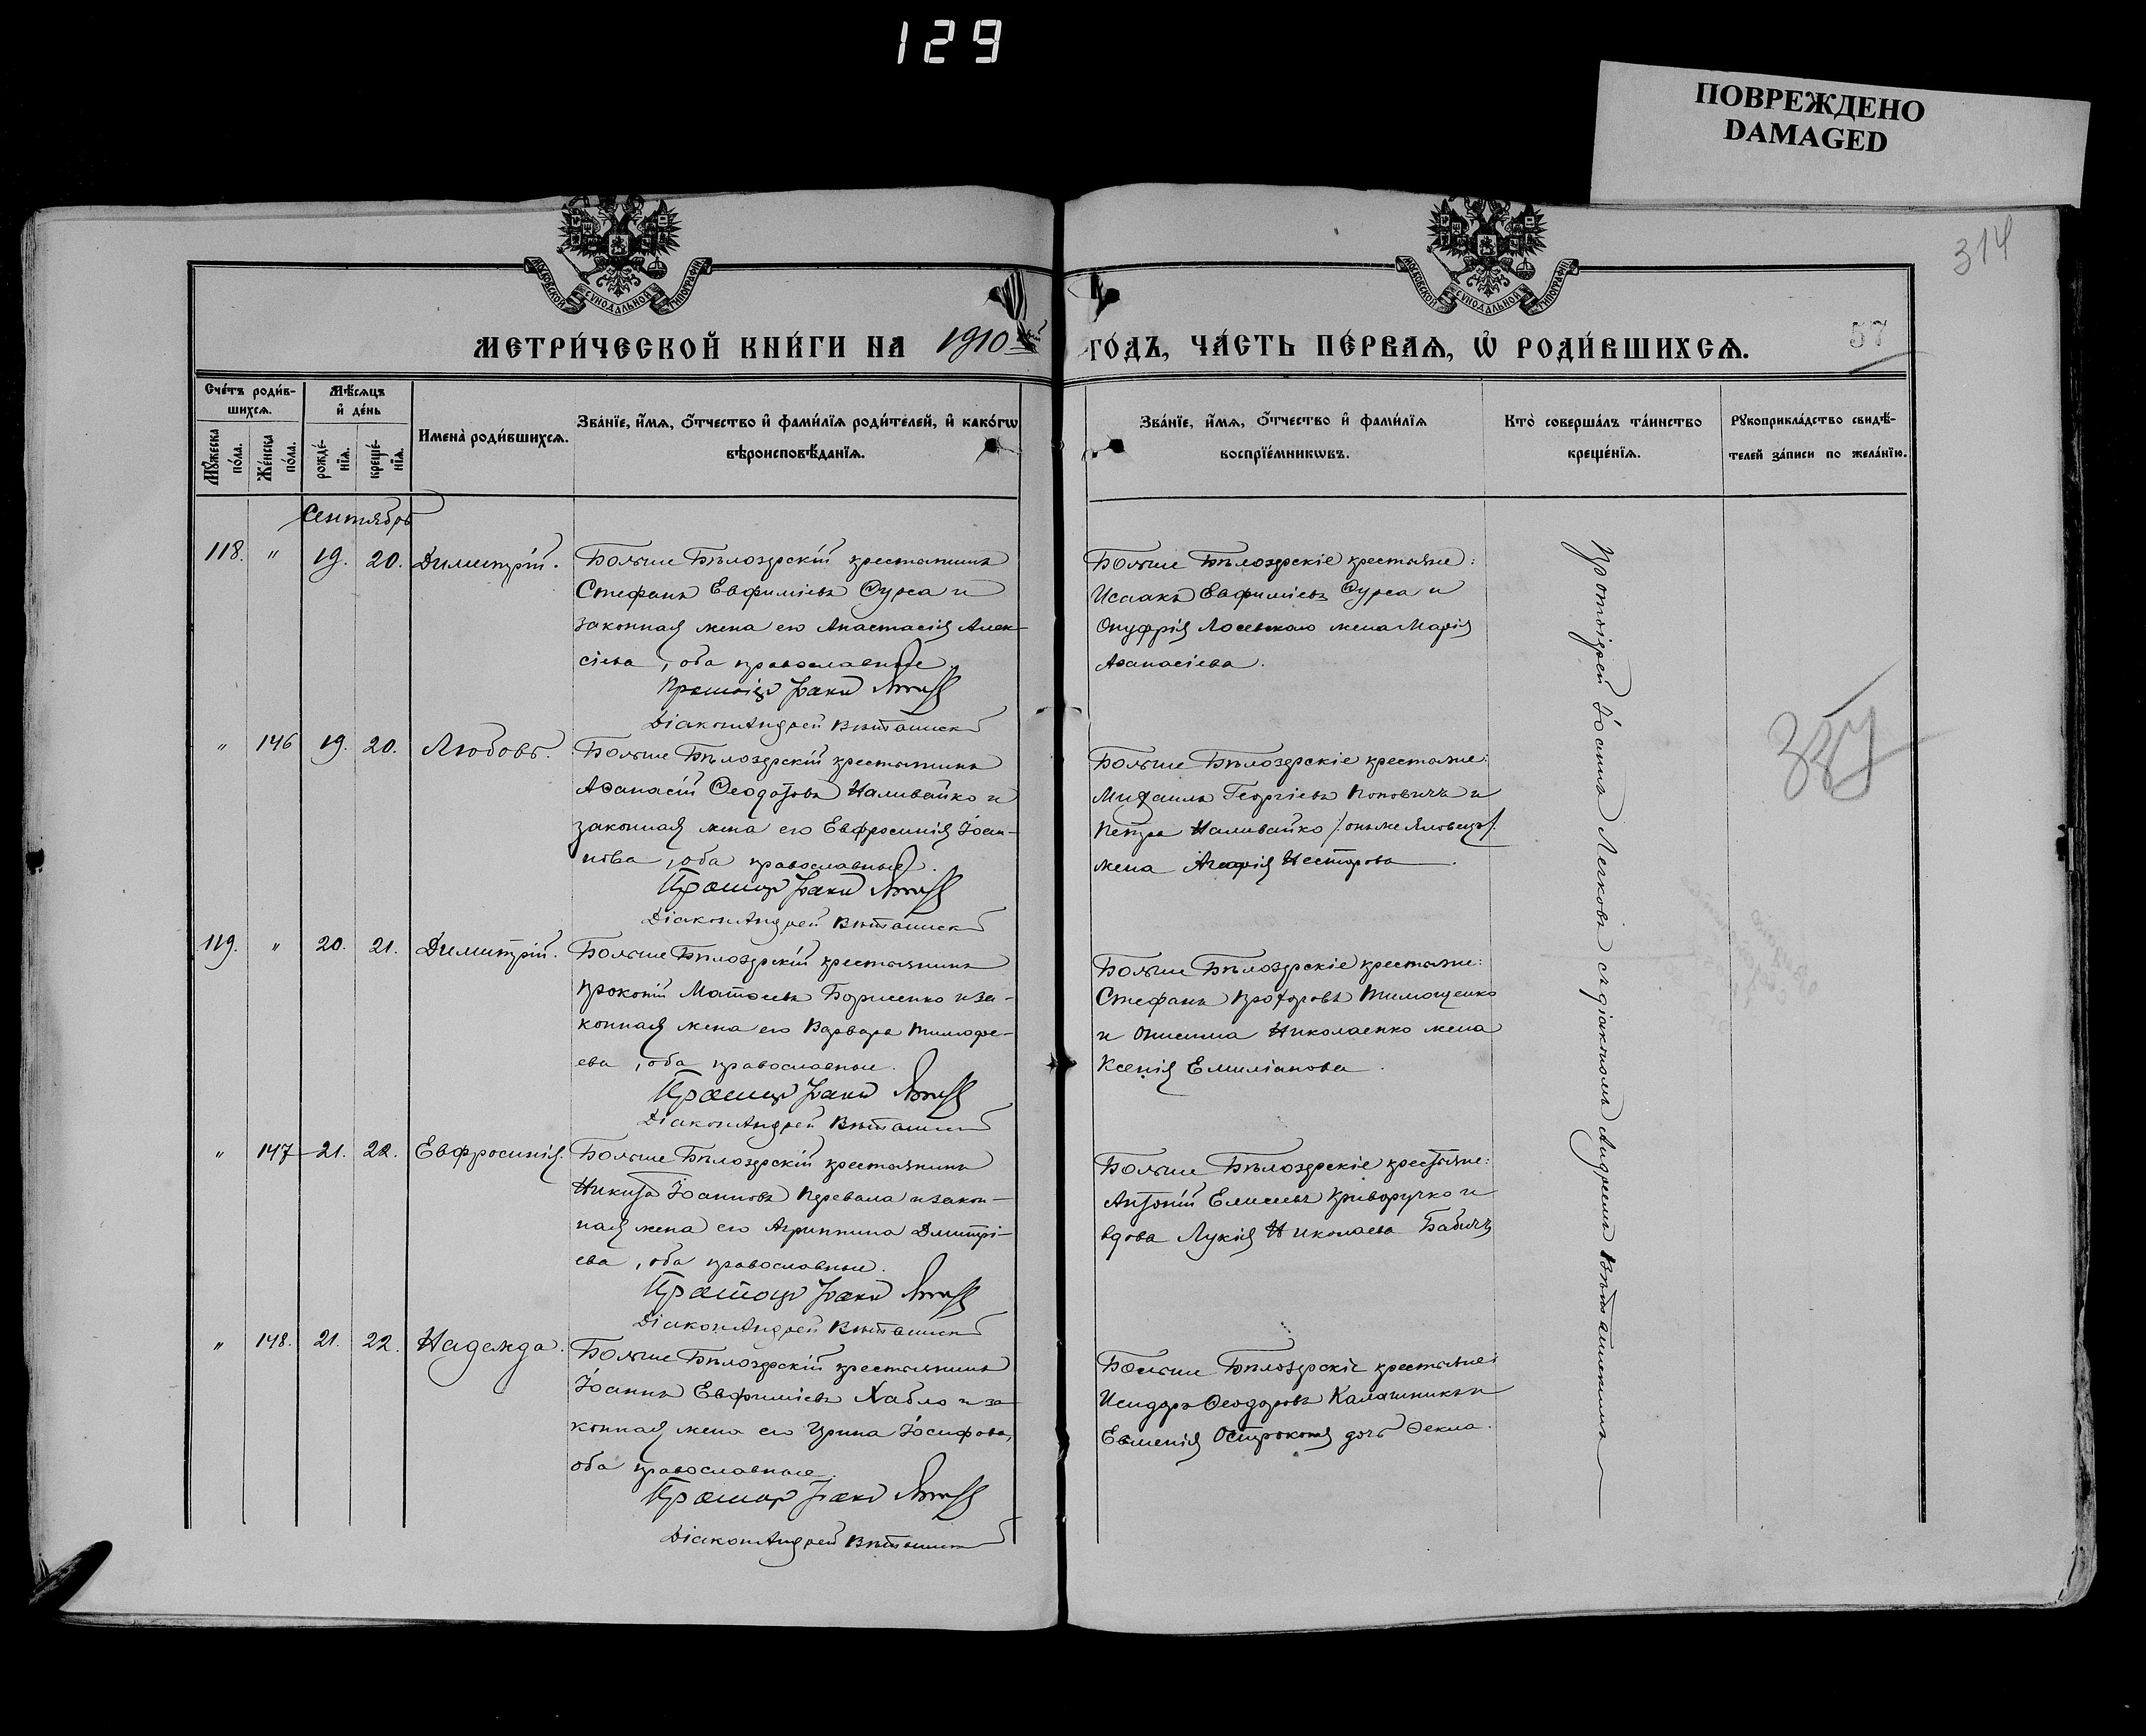 129
ПОВРЕЖДЕНО
DAMAGED
314
МОСКОВСКОЙ СУНОДАЛЬНОЙ ТИПОГРАФІИ
МОСКОВСКОЙ СУНОДАЛЬНОЙ ТИПОГРАФІИ
МЕТРИ́ЧЕСКОЙ КНИ́ГИ НА 1910 ГО́ДЪ, ЧА́СТЬ ПЕ́РВАѦ, Ѡ҆ РОДИ́ВШИХСѦ.
57
Сче́тъ роди́в-
шихсѧ.
Мѣ́сѧцъ
и҆ де́нь
Мꙋ́жеска по́ла.
Же́нска по́ла.
рожде́-нїѧ.
креще́-нїѧ.
Имена̀ роди́вшихсѧ.
Зва́нїе, и҆́мѧ, ѻ҆́тчество и҆ фами́лїѧ роди́телей, и҆ како́гѡ
вѣроисповѣ́данїѧ.
Зва́нїе, и҆́мѧ, ѻ҆́тчество и҆ фами́лїѧ
воспрїе́мникѡвъ.
Кто̀ соверша́лъ та́инство
креще́нїѧ.
Рꙋкоприкла́дство свидѣ́-
телей за́писи по жела́нїю.
Сентябрь
118. " 19. 20. Димитрій.
Больше Бѣлозерскій крестьянинъ
Стефанъ Евфиміевъ Ѳурса и
законная жена его Анастасія Алек-
сіева, оба православные
Протоіер Іоанн
Діаконъ Андрей Вѣташевск
Больше Бѣлозерскіе крестьяне:
Исаакъ Евфиміевъ Ѳурса и
Онуфрія Лосевскаго жена Марія
Аѳанасіева.
" 146 19. 20. Любовь.
Больше Бѣлозерскій крестьянинъ
Аѳанасій Ѳеодотовъ Наливайко и
законная жена его Евфросинія Іоан-
нова, оба православные.
Протоіер Іоанн
Діаконъ Андрей Вѣташевск
Больше Бѣлозерскіе крестьяне:
Михаилъ Георгіевъ Поповичъ и
Петра Наливайко /: онъ же Яловецъ:/
жена Агафія Нестерова
119. " 20. 21. Димитрій.
Больше Бѣлозерскій крестьянинъ
Прокопій Матѳеевъ Борисенко и за-
конная жена его Варвара Тимофе-
ева, оба православные.
Протоіер Іоанн
Діаконъ Андрей Вѣташевск
Больше Бѣлозерскіе крестьяне:
Стефанъ Прохоровъ Тимощенко
и Онисима Николаенко жена
Ксенія Емиліанова.
" 147 21. 22. Евфросинія.
Больше Бѣлозерскій крестьянинъ
Никита Іоанновъ Перевала и закон-
ная жена его Агриппина Дмитрі-
ева, оба православные.
Протоіер Іоанн
Діаконъ Андрей Вѣташевск
Больше Бѣлозерскіе крестьяне:
Антоній Елисеевъ Криворучко и
вдова Лукія Николаева Бабичъ
" 148. 21. 22. Надежда.
Больше Бѣлозерскій крестьянинъ
Іоаннъ Евфиміевъ Хабло и за
конная жена его Ирина Іосифова,
оба православные.
Протоіер Іоанн
Діаконъ Андрей Вѣташевск
Больше Бѣлозерскіе крестьяне:
Исидоръ Ѳеодоровъ Калашникъ и
Евменія дочь Ѳекла.
Протоіерей Іоаннъ Легковъ съ діакономъ Андреемъ Вѣташевскимъ